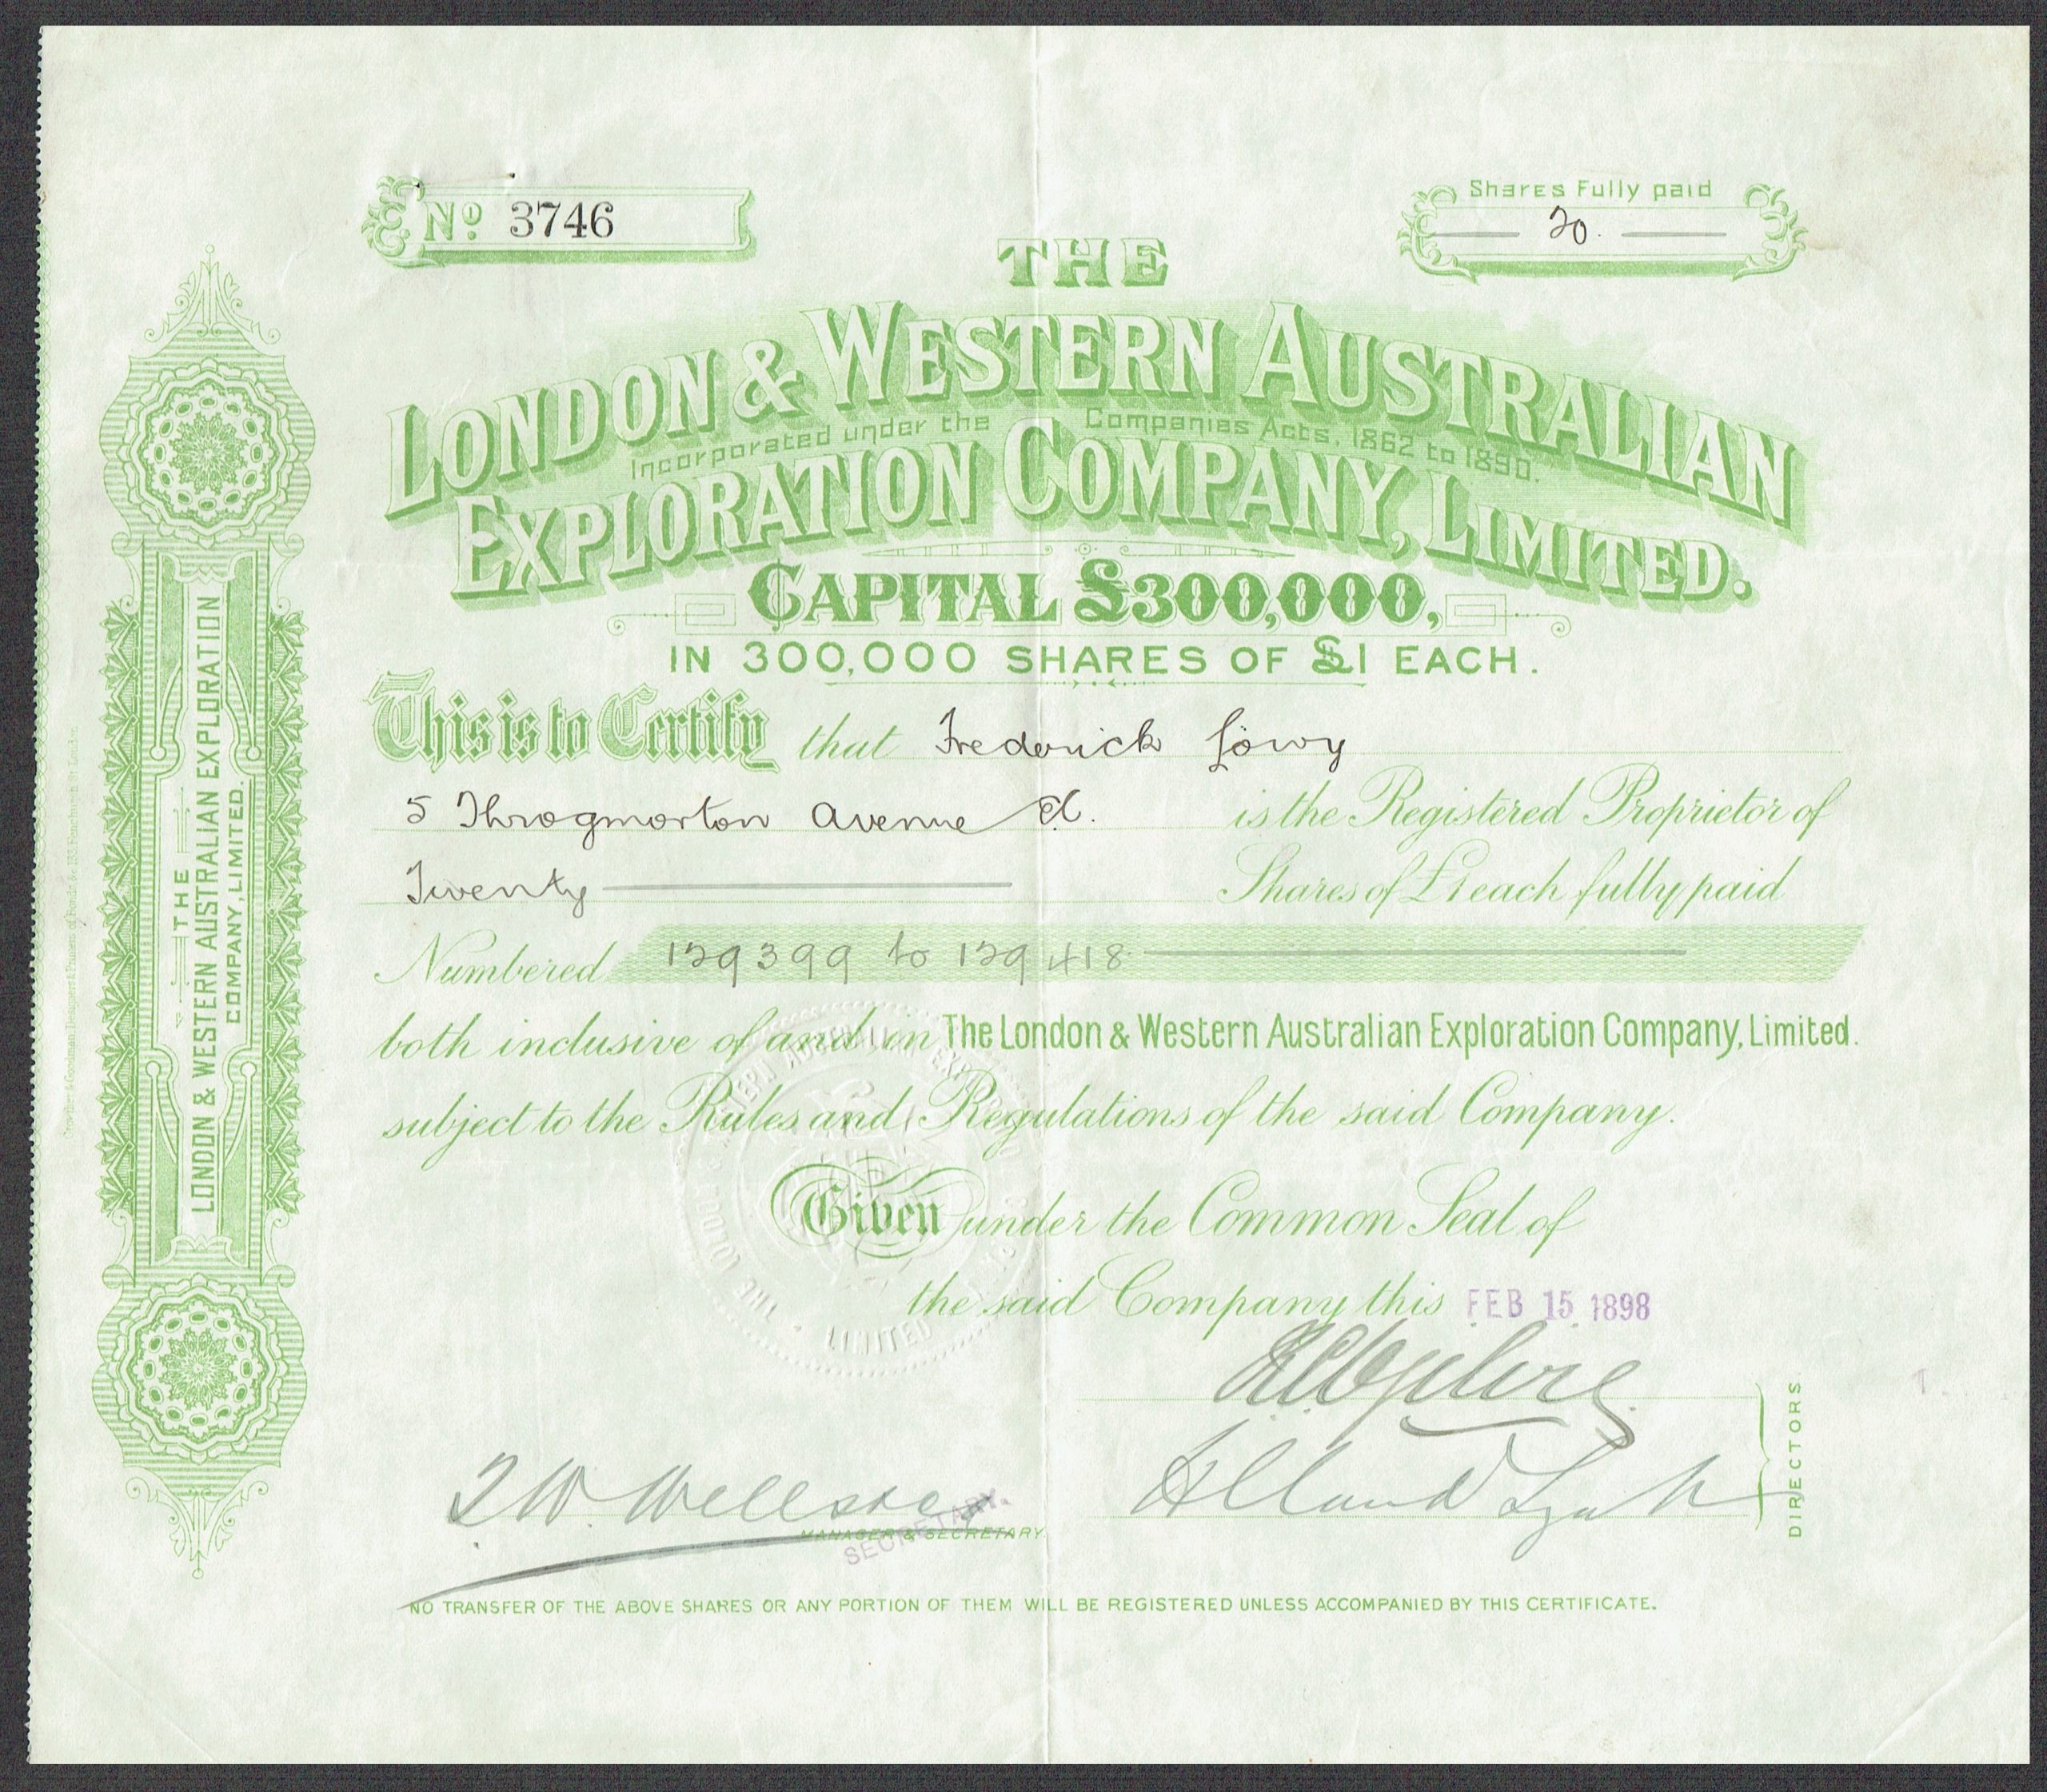 No. 3746
Shares Fully paid
20.
THE
LONDON & WESTERN AUSTRALIAN
Incorporated under the Companies Acts, 1862 to 1890.
EXPLORATION COMPANY, LIMITED.
CAPITAL £300,000,
IN 300,000 SHARES OF £1 EACH.
This is to Certify that Frederick Löwy
5 Throgmorton Avenue E.C. is the Registered Proprietor of
Twenty Shares of £1 each fully paid
Numbered 129399 to 129418
both inclusive of and in The London & Western Australian Exploration Company, Limited.
subject to the Rules and Regulations of the said Company.
Given under the Common Seal of
the said Company this FEB 15 1898
DIRECTORS
MANAGER & SECRETARY
SECRETARY.
NO TRANSFER OF THE ABOVE SHARES OR ANY PORTION OF THEM WILL BE REGISTERED UNLESS ACCOMPANIED BY THIS CERTIFICATE.
THE
LONDON & WESTERN AUSTRALIAN EXPLORATION
COMPANY, LIMITED.